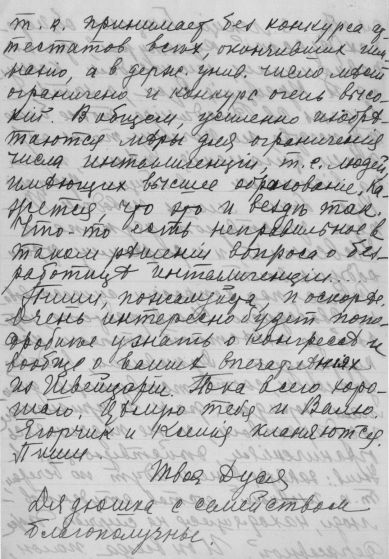 т. к. принимает без конкурса а
тестатов всѣх окончивших гим
назію, а в держ. унив. число мѣст
ограничено и конкурс очень высо
кій. В общем, усиленно изобрѣ
таются мѣры для ограниченія
числа интеллигенціи, т. е. людей,
имѣющих высшее образованіе. Ка
жется, что это и вездѣ так.
Что-то есть неправильное в
таком рѣшеніи вопроса о без-
работицѣ интеллигенціи.
Пиши, пожалуйста, поскорѣе
Очень интересно будет попо
дробнѣе узнать о конгрессѣ и
вообще о ваших впечатлѣніях
из Швейцаріи. Пока всего хоро-
шаго. Цѣлую тебя и Валю.
Егорчик и Ксенія кланяются.
Пиши.
Твоя Дуся
Дядюшка с семейством
благополучны.